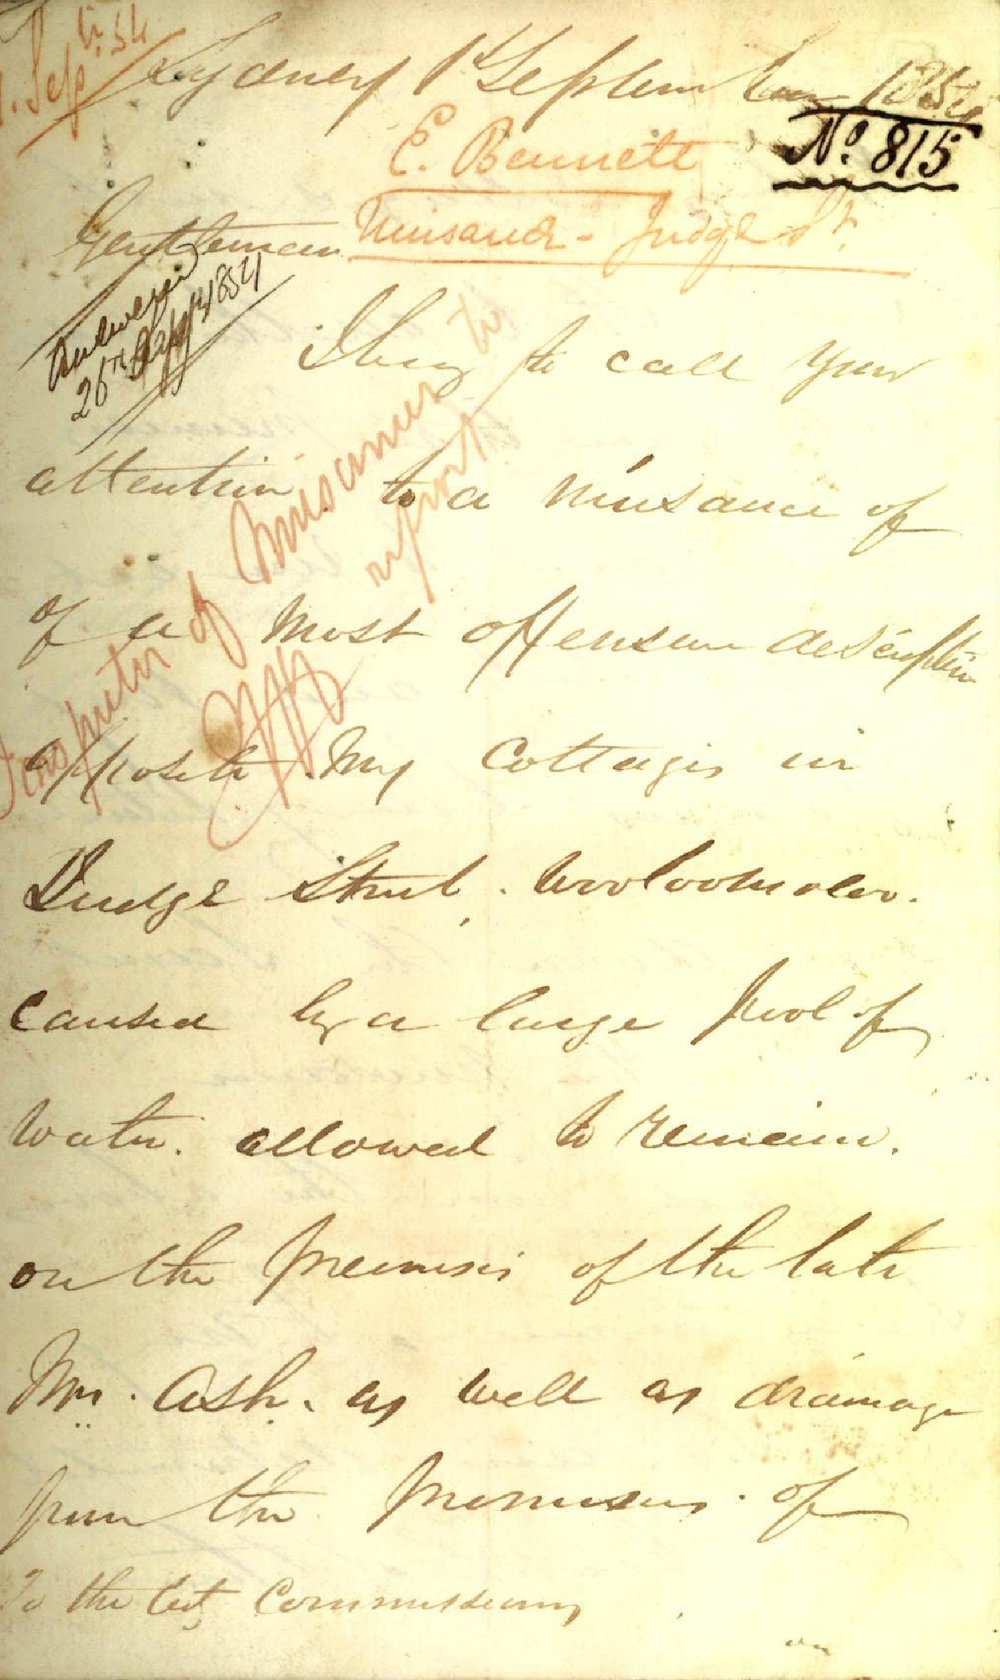 Sept. 54
Sydney 1st September 1854
No. 815
E. Bennett
Nuisance - Judge St.
Gentlemen
Answered
26th Sept 1854
I beg to call your
attention to a nuisance of
of a most offensive description
opposite my Cottages in
Judge Street, Wooloomoloo.
caused by a large pool of
water. allowed to remain.
on the premises of the late
Mr. Ash. as well as drainage
from the premises. of
To the City Commissioners
Inspector of Nuisances to
report